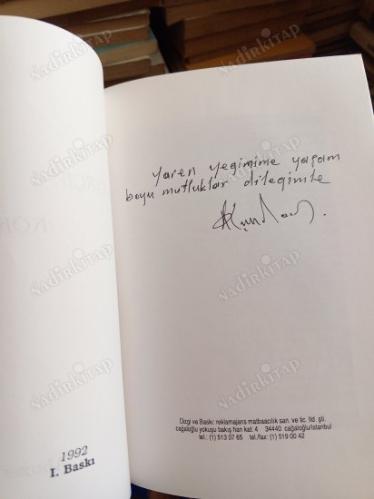 yaren yegimime yaşam
boyu mutluklar dilegimle
Dizgi ve Baskı: reklamajans matbaacılık san. ve tic. ltd. şti.
cağaloğlu yokuşu bakış han kat: 4 34440 cağaloğlu/istanbul
tel.: (1) 513 07 65 tel./fax: (1) 519 00 42
1992
I. Baskı
nadirkitap